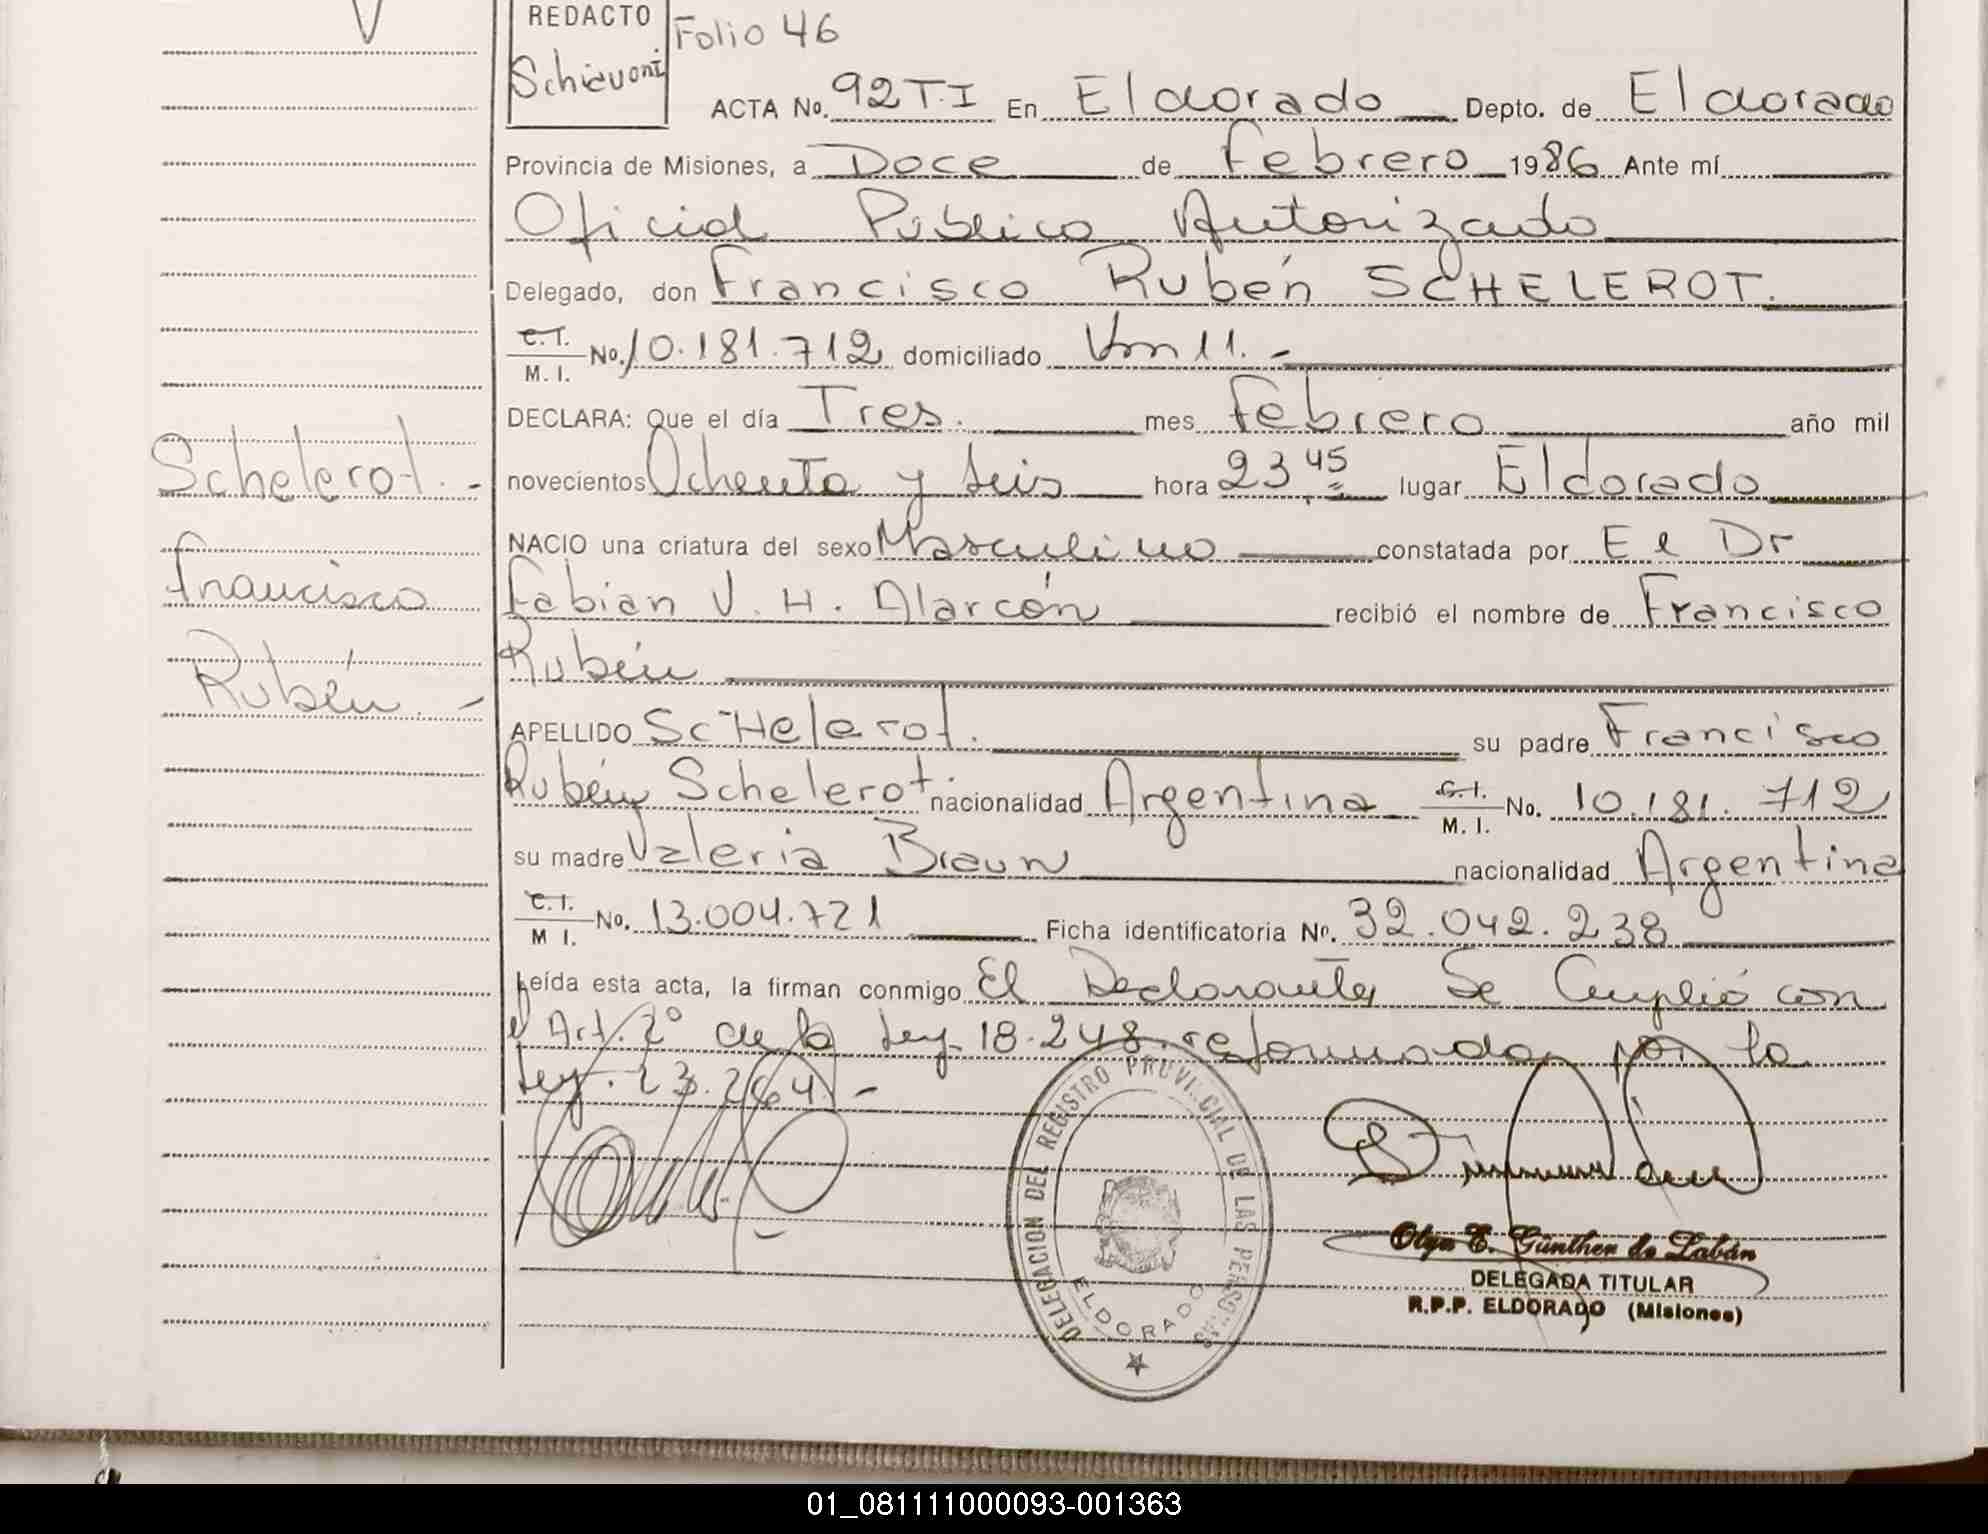 REDACTO
Schiavoni
Folio 46
ACTA No. 92 T.I En Eldorado Depto. de Eldorado
Provincia de Misiones, a Doce de Febrero 1986 Ante mí
Oficial Publico Autorizado
Delegado, don Francisco Rubén SCHELEROT.
C.I.
M. I. No. 10.181.712 domiciliado Km 11.-
DECLARA: Que el día Tres. mes Febrero año mil
novecientos Ochenta y seis hora 23,45 lugar Eldorado
NACIO una criatura del sexo Masculino constatada por El Dr
Fabian V. H. Alarcón recibió el nombre de Francisco
Rubén
APELLIDO ScHelerot. su padre Francisco
Rubén Schelerot. nacionalidad Argentina C.I.
M. I. No. 10.181.712
su madre Valeria Braun nacionalidad Argentina
C.I.
M I. No. 13.004.721 Ficha identificatoria No. 32.042.238
Leída esta acta, la firman conmigo El Declarante, Se Cumplió con
el Art. 2° de la Ley 18.248. reformada por la
Ley. 23.264. -
Schelerot. -
Francisco
Rubén. -
DELEGACION DEL REGISTRO PROVINCIAL DE LAS PERSONAS
ELDORADO
Olga E. Günther de Labán
DELEGADA TITULAR
R.P.P. ELDORADO (Misiones)
01_081111000093-001363